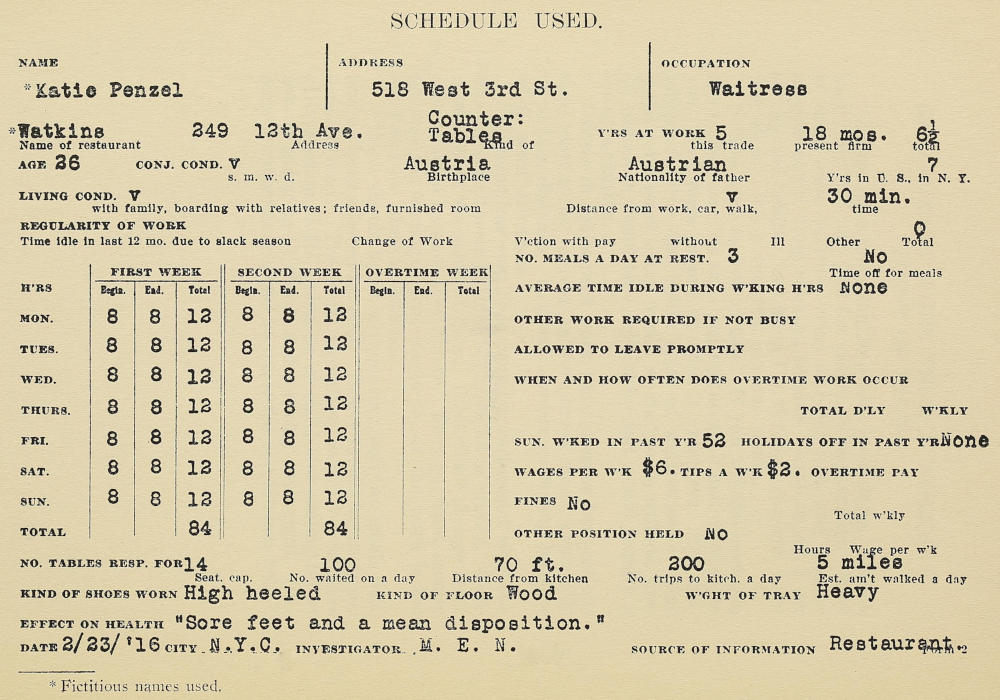 SCHEDULE USED.
NAME ADDRESS OCCUPATION
*Katie Penzel 518 West 3rd St. Waitress
Counter:
*Watkins 249 12th Ave. Tables Y'RS AT WORK 5 18 mos. 6½
Name of restaurant Address Kind of this trade present firm total
AGE 26 CONJ. COND. V Austria Austrian 7
s. m. w. d. Birthplace Nationality of father Y'rs in U. S., in N. Y.
LIVING COND. V V 30 min.
with family, boarding with relatives; friends, furnished room Distance from work, car, walk, time
REGULARITY OF WORK 0
Time idle in last 12 mo. due to slack season Change of Work V'ction with pay without Ill Other Total
NO. MEALS A DAY AT REST. 3 No
FIRST WEEK SECOND WEEK OVERTIME WEEK Time off for meals
H'RS Begin. End. Total Begin. End. Total Begin. End. Total AVERAGE TIME IDLE DURING W'KING H'RS None
MON. 8 8 12 8 8 12 OTHER WORK REQUIRED IF NOT BUSY
TUES. 8 8 12 8 8 12 ALLOWED TO LEAVE PROMPTLY
WED. 8 8 12 8 8 12 WHEN AND HOW OFTEN DOES OVERTIME WORK OCCUR
THURS. 8 8 12 8 8 12 TOTAL D'LY W'KLY
FRI. 8 8 12 8 8 12 SUN. W'KED IN PAST Y'R 52 HOLIDAYS OFF IN PAST Y'R None
SAT. 8 8 12 8 8 12 WAGES PER W'K $6. TIPS A W'K $2. OVERTIME PAY
SUN. 8 8 12 8 8 12 FINES No
Total w'kly
TOTAL 84 84 OTHER POSITION HELD NO
Hours Wage per w'k
NO. TABLES RESP. FOR 14 100 70 ft. 200 5 miles
Seat. cap. No. waited on a day Distance from kitchen No. trips to kitch. a day Est. am't walked a day
KIND OF SHOES WORN High heeled KIND OF FLOOR Wood W'GHT OF TRAY Heavy
EFFECT ON HEALTH "Sore feet and a mean disposition."
DATE 2/23/'16 CITY N.Y.C. INVESTIGATOR M. E. N. SOURCE OF INFORMATION Restaurant.
* Fictitious names used.